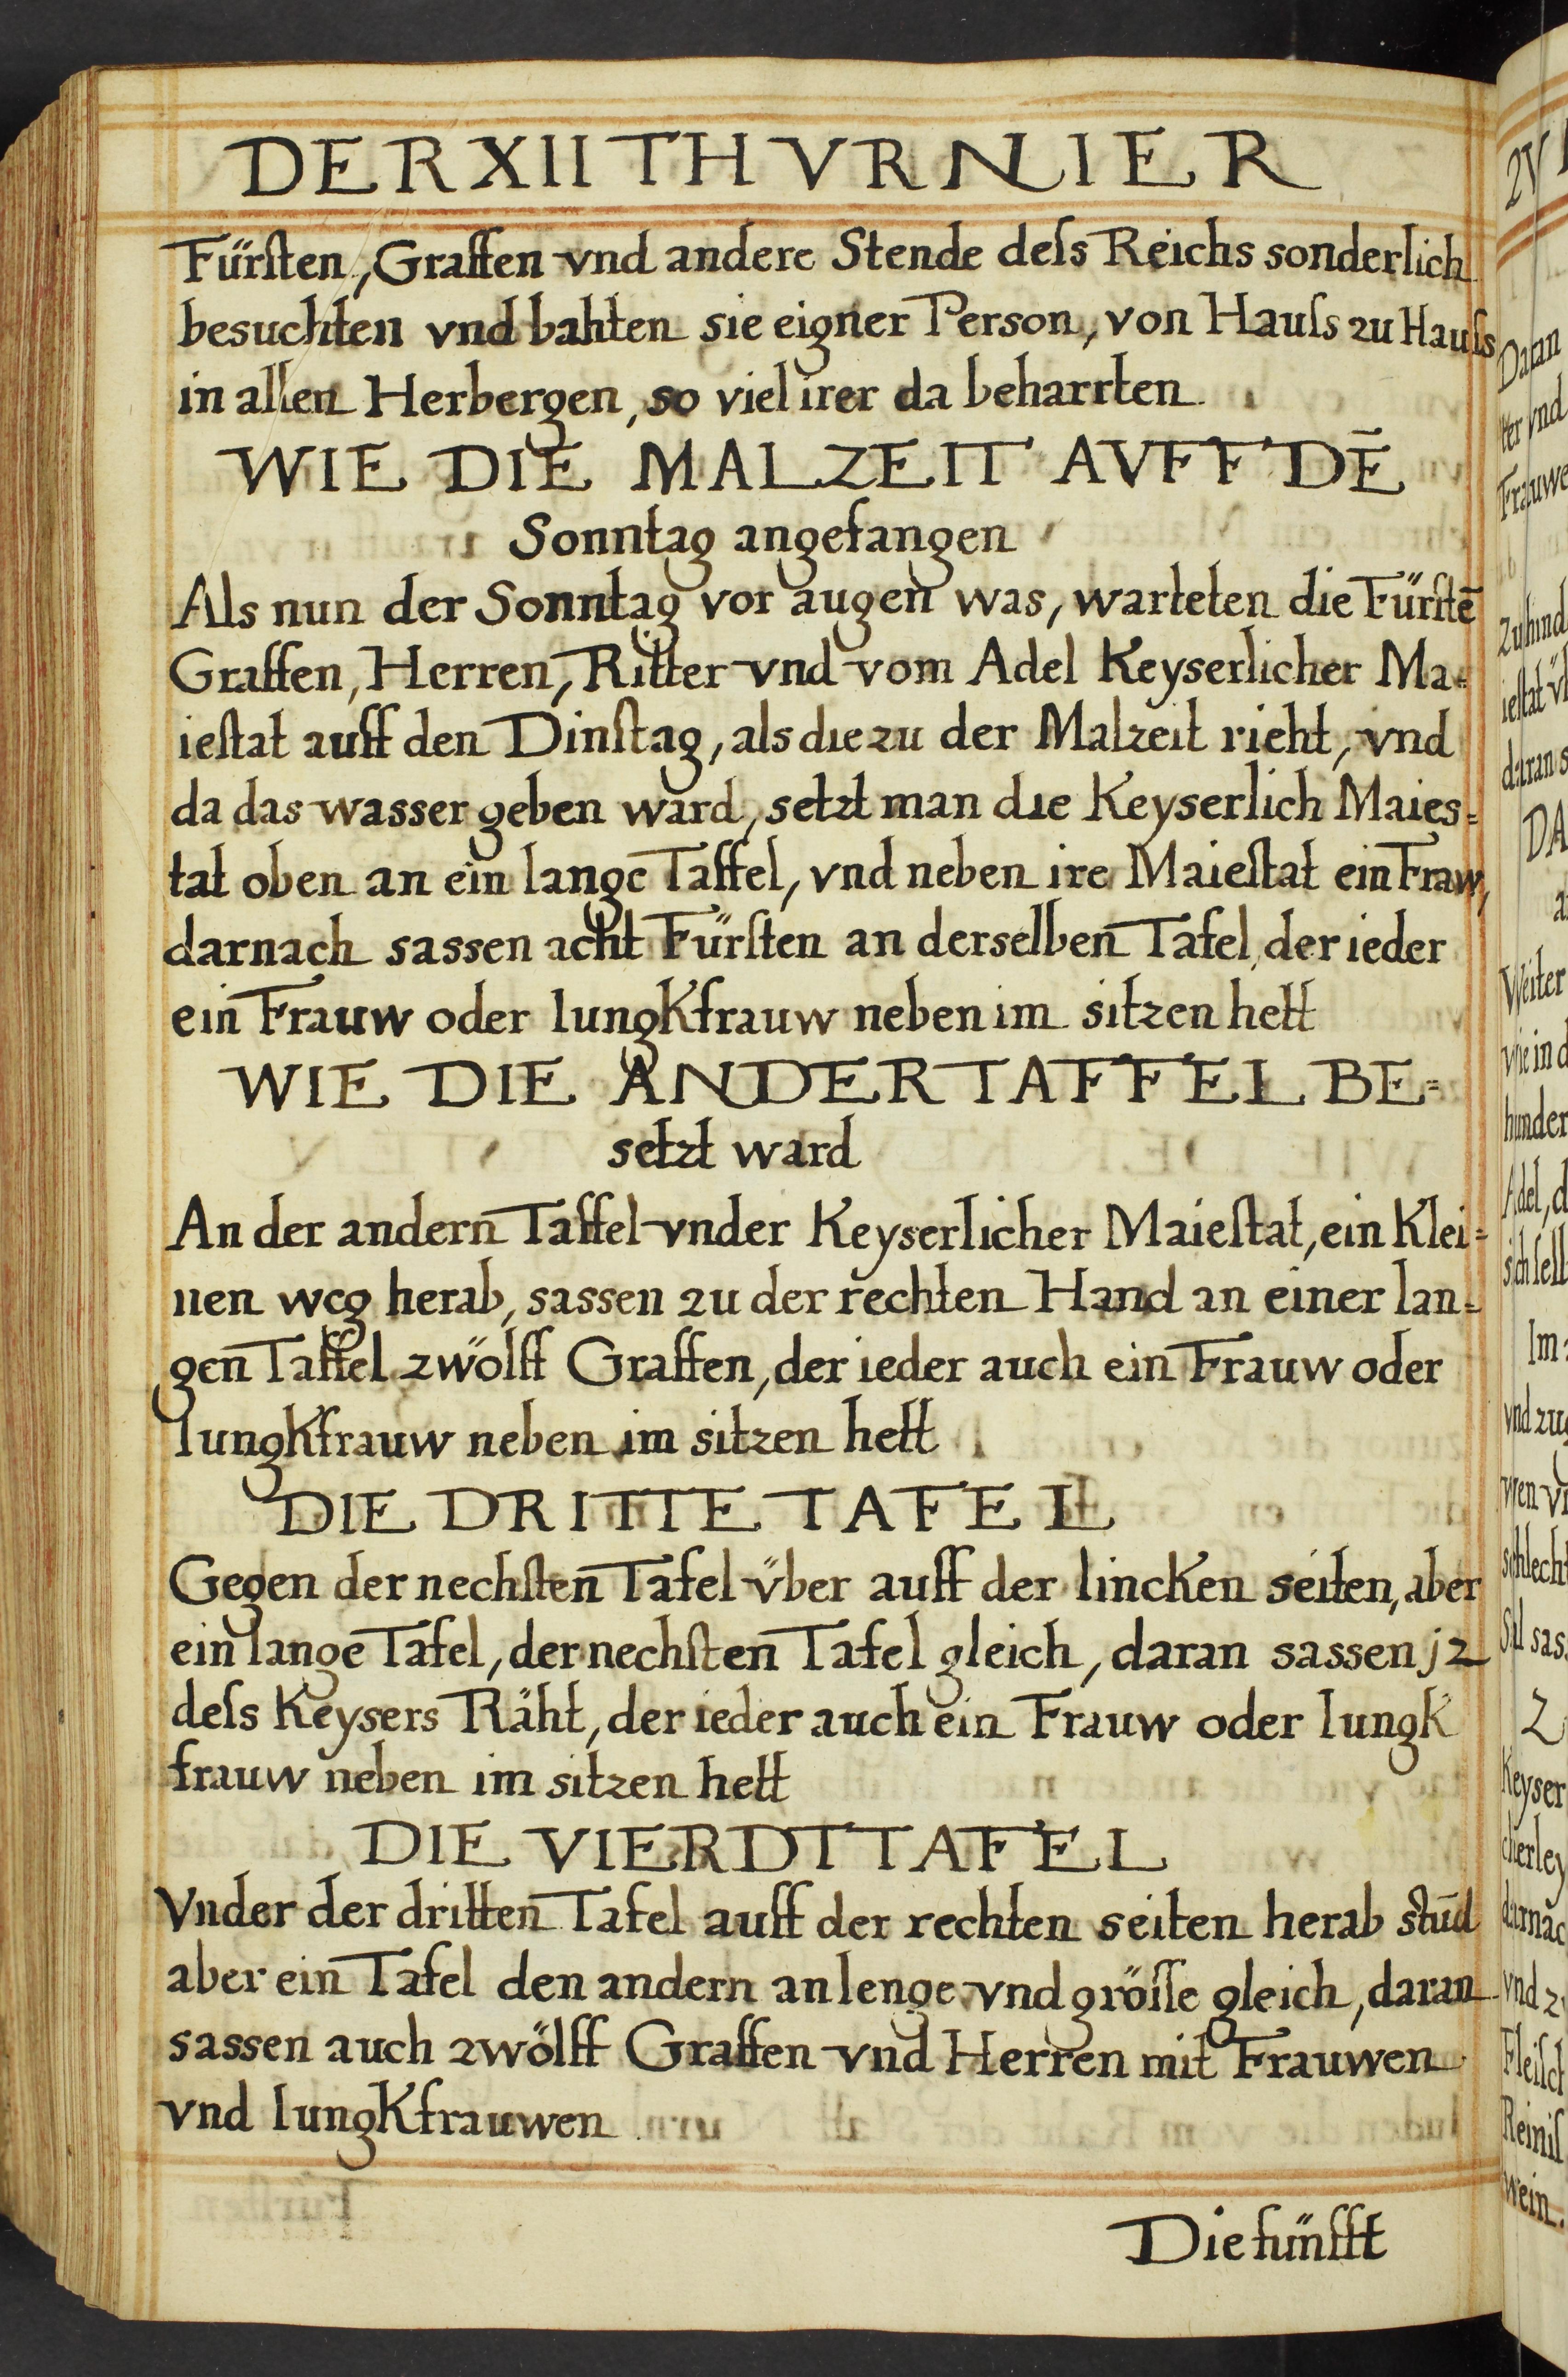 DER XII THVRNIER
Fürſten, Graffen vnd andere Stende deſs Reichs sonderlich
besuchten vnd bahten sie eigner Person, von Hauſs zu Hauſs
in allen Herbergen, so viel irer da beharrten
WIE DIE MALZEIT AVFF DĒ
Sonntag angefangen
Als nun der Sonntag vor augen was, warteten die Fürſtē
Graffen, Herren, Ritter vnd vom Adel Keyserlicher Ma=
ieſtat auff den Dinſtag, als die zu der Malzeit rieht, vnd
da das wasser geben ward, setzt man die Keyserlich Maies=
tat oben an ein lange Taffel, vnd neben ire Maieſtat ein Fraw,
darnach sassen acht Fürſten an derselben Tafel, der ieder
ein Frauw oder IungKfrauw neben im sitzen hett
WIE DIE ANDER TAFFEL BE=
setzt ward
An der andern Taffel vnder Keyserlicher Maieſtat, ein Klei=
nen weg herab, sassen zu der rechten Hand an einer lan=
gen Taffel zwölff Graffen, der ieder auch ein Frauw oder
IungKfrauw neben im sitzen hett
DIE DRITTE TAFEL
Gegen der nechſten Tafel über auff der lincKen seiten, aber
ein lange Tafel, der nechſten Tafel gleich, daran sassen j2
deſs Keysers Räht, der ieder auch ein Frauw oder IungK
frauw neben im sitzen hett
DIE VIERDT TAFEL
Vnder der dritten Tafel auff der rechten seiten herab ſtūd
aber ein Tafel den andern an lenge vnd gröſſe gleich, daran
sassen auch zwölff Graffen vnd Herren mit Frauwen
vnd IungKfrauwen
Die fünfft